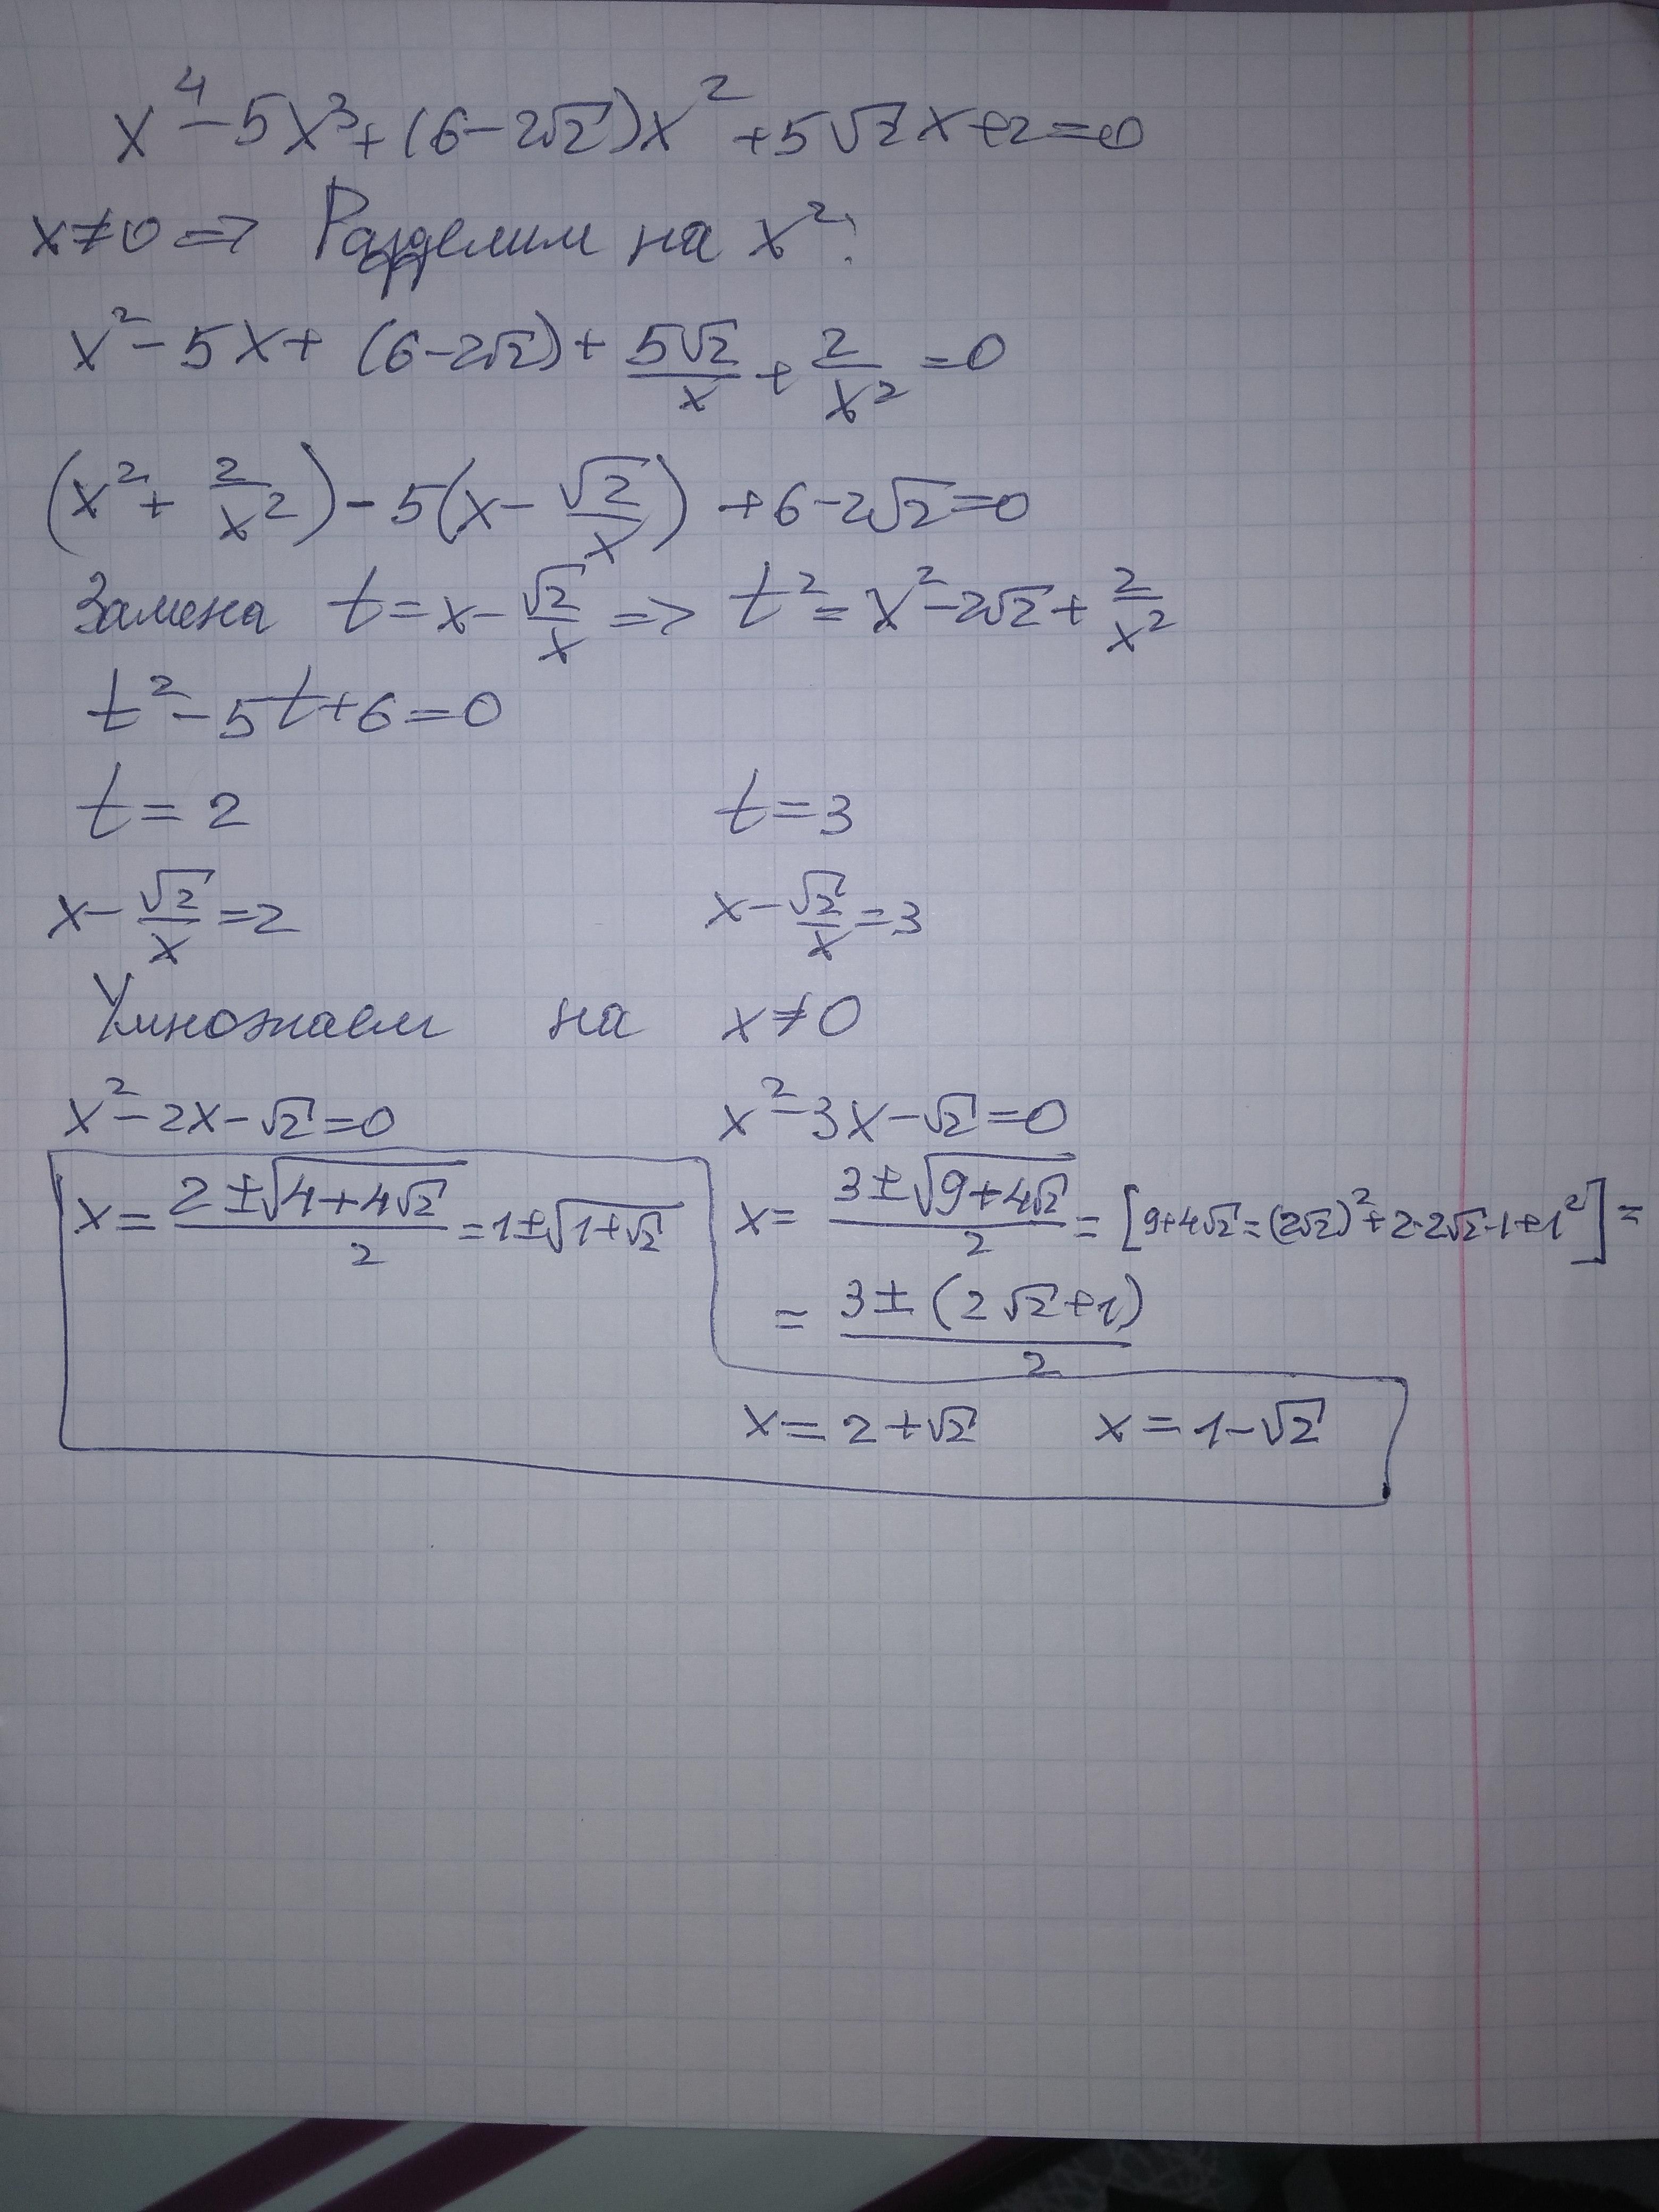 x⁴ - 5x³ + (6 - 2√2)x² + 5√2x + 2 = 0
x ≠ 0 => Разделим на x²:
x² - 5x + (6 - 2√2) + 5√2/x + 2/x² = 0
(x² + 2/x²) - 5(x - √2/x) + 6 - 2√2 = 0
Замена t = x - √2/x => t² = x² - 2√2 + 2/x²
t² - 5t + 6 = 0
t = 2 t = 3
x - √2/x = 2 x - √2/x = 3
Умножаем на x ≠ 0
x² - 2x - √2 = 0 x² - 3x - √2 = 0
x = (2 ± √(4 + 4√2))/2 = 1 ± √(1 + √2) x = (3 ± √(9 + 4√2))/2 = [9 + 4√2 = (2√2)² + 2·2√2·1 + 1²] =
= (3 ± (2√2 + 1))/2
x = 2 + √2 x = 1 - √2